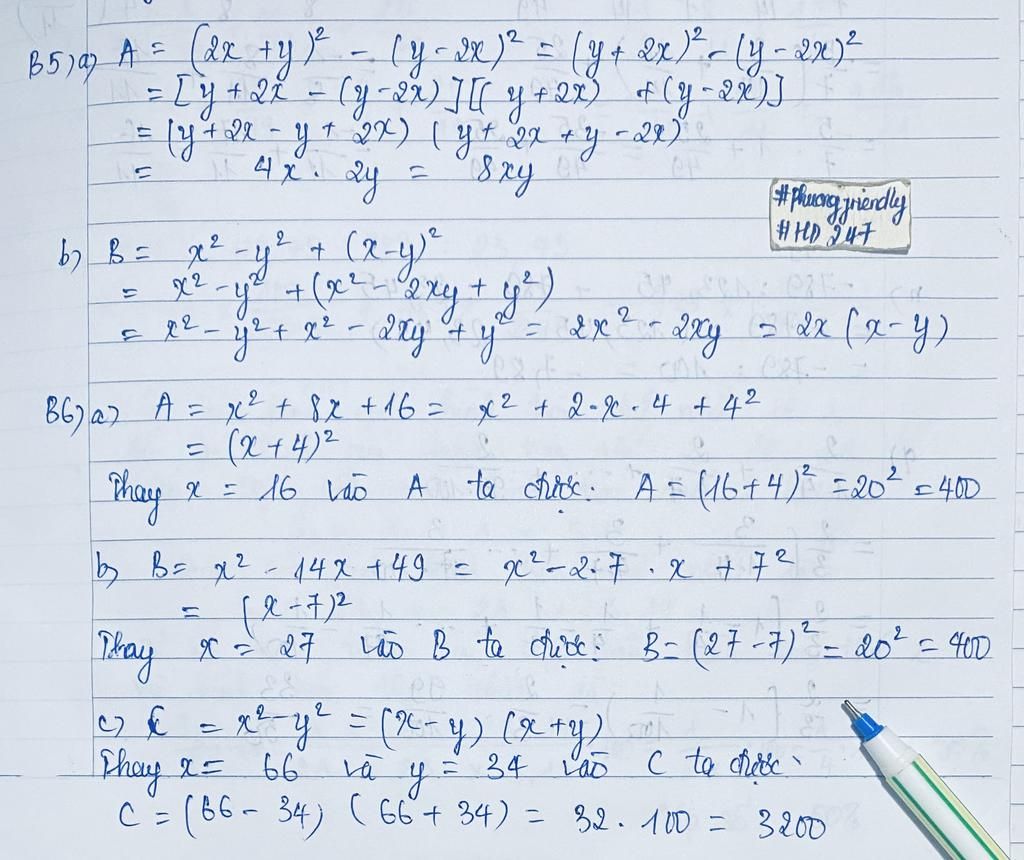 B5) a) A = (2x + y)² - (y - 2x)² = (y + 2x)² - (y - 2x)²
= [y + 2x - (y - 2x)][(y + 2x) + (y - 2x)]
= (y + 2x - y + 2x) (y + 2x + y - 2x)
= 4x . 2y = 8xy
#Phuongfriendly
#HD 247
b) B = x² - y² + (x - y)²
= x² - y² + (x² - 2xy + y²)
= x² - y² + x² - 2xy + y² = 2x² - 2xy = 2x (x - y)
B6) a) A = x² + 8x + 16 = x² + 2.x.4 + 4²
= (x + 4)²
Thay x = 16 vào A ta được: A = (16 + 4)² = 20² = 400
b) B = x² - 14x + 49 = x² - 2.7.x + 7²
= (x - 7)²
Thay x = 27 vào B ta được: B = (27 - 7)² = 20² = 400
c) C = x² - y² = (x - y) (x + y)
Thay x = 66 và y = 34 vào C ta được:
C = (66 - 34) (66 + 34) = 32 . 100 = 3200